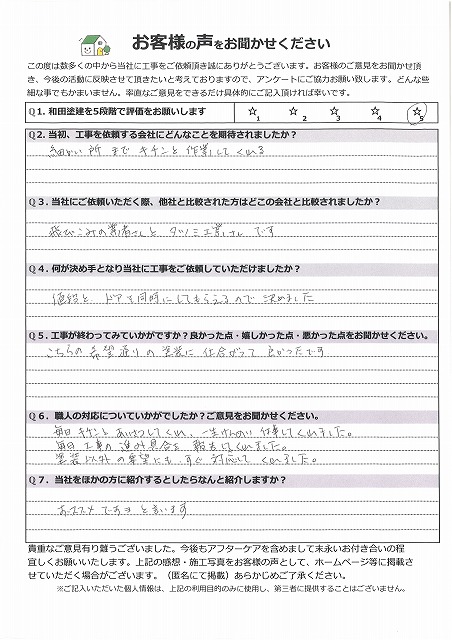 お客様の声をお聞かせください
この度は数多くの中から当社に工事をご依頼頂き誠にありがとうございます。お客様のご意見をお聞かせ頂
き、今後の活動に反映させて頂きたいと考えておりますので、アンケートにご協力お願い致します。どんな些
細な事でもかまいません。率直なご意見をできるだけ具体的にご記入頂ければ幸いです。
Q1. 和田塗建を5段階で評価をお願いします ☆1 ☆2 ☆3 ☆4 ☆5
Q2. 当初、工事を依頼する会社にどんなことを期待されましたか？
細かい所までキチンと作業してくれる
Q3. 当社にご依頼いただく際、他社と比較された方はどこの会社と比較されましたか？
飛びこみの業者さんとタツミ工業さんです
Q4. 何が決め手となり当社に工事をご依頼していただけましたか？
値段と、ドアも同時にしてもらえるので決めました
Q5. 工事が終わってみていかがですか？良かった点・嬉しかった点・悪かった点をお聞かせください。
こちらの希望通りの塗装に仕上がって良かったです
Q6. 職人の対応についていかがでしたか？ご意見をお聞かせください。
毎日キチンとあいさつしてくれ、一生けんめい仕事してくれました。
毎日工事の進み具合を報告してくれました。
塗装以外の希望にも、すぐ対応してくれました。
Q7. 当社をほかの方に紹介するとしたらなんと紹介しますか？
おススメですョと言います
貴重なご意見有り難うございました。今後もアフターケアを含めまして末永いお付き合いの程
宜しくお願いいたします。上記の感想・施工写真をお客様の声として、ホームページ等に掲載さ
せていただく場合がございます。（匿名にて掲載）あらかじめご了承ください。
※ご記入いただいた個人情報は、上記の利用目的のみに使用し、第三者に提供することはございません。